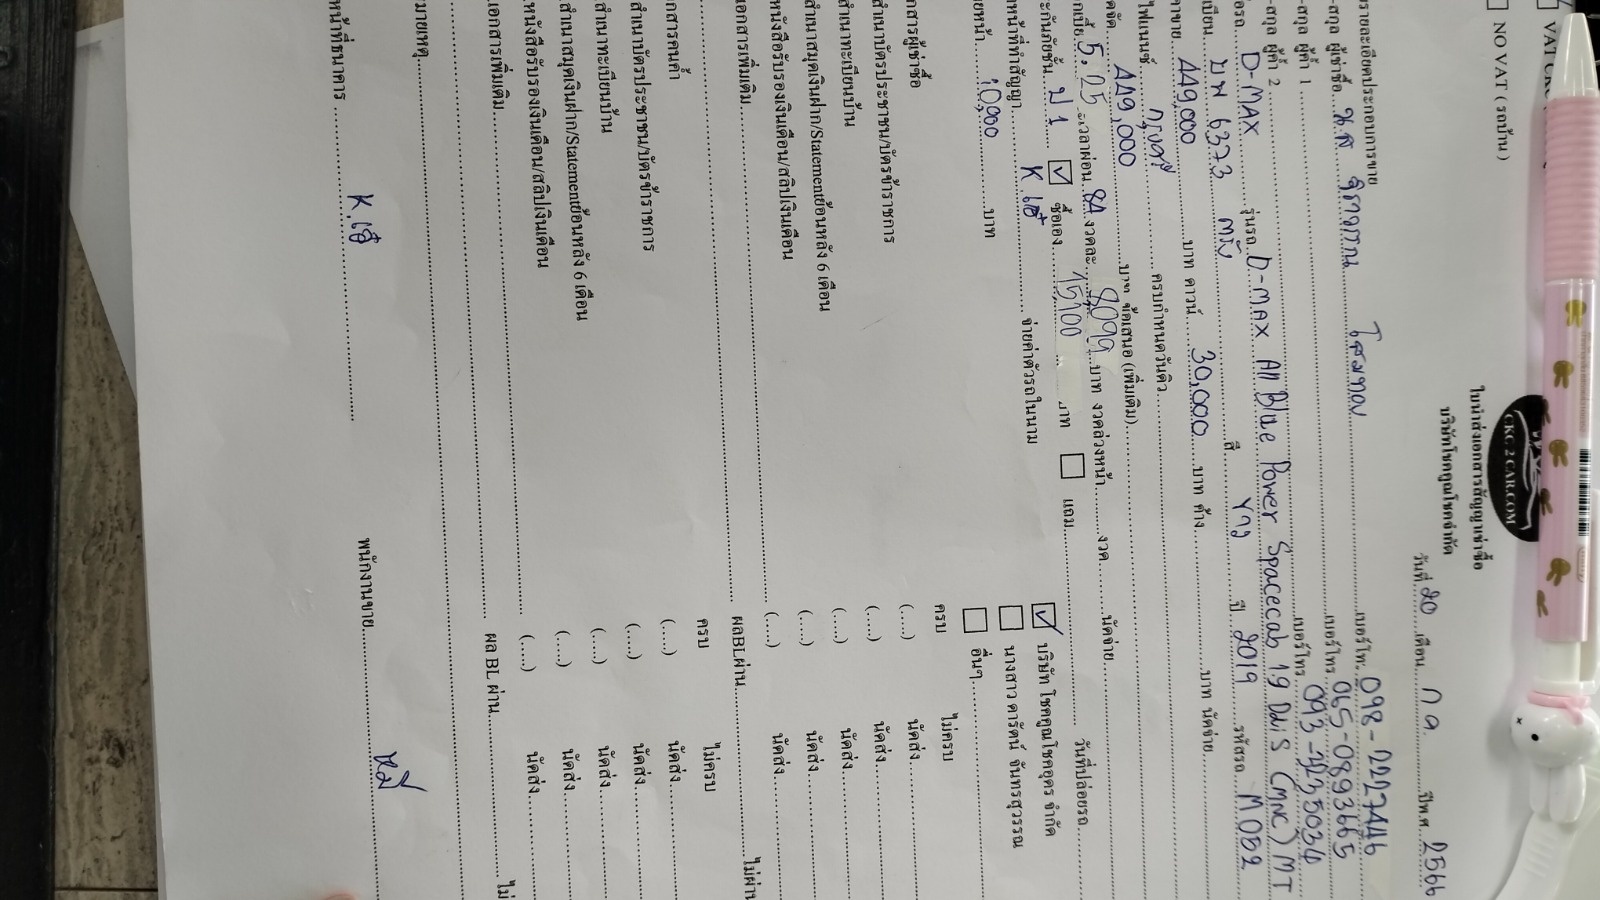 NO VAT ( รถบ้าน )
CKC 2 CAR.COM
ใบนำส่งเอกสารสัญญาเช่าซื้อ
บริษัทโชคคูณโชคจำกัด
วันที่ 20 เดือน ก.ค. ปีพ.ศ. 2566
รายละเอียดประกอบการขาย
-สกุล ผู้เช่าซื้อ น.ส. เบอร์โทร. 098-2227446
-สกุล ผู้ค้ำ 1 เบอร์โทร 065-0893665
-สกุล ผู้ค้ำ 2 เบอร์โทร 093-3235034
D-MAX รุ่นรถ D-MAX All Blue Power Spacecab 1.9 Ddi S (MNC) MT
บพ 6373 ตรัง สี ขาว ปี 2019 รหัสรถ M002
449,000 บาท ดาวน์ 30,000 บาท ค้าง บาท นัดจ่าย
ไฟแนนซ์ กรุงศรี ครบกำหนดวันคิว
449,000 บาท ข้อเสนอ (เพิ่มเติม)
5.25 ระยะเวลาผ่อน 84 งวดละ 8,099 บาท งวดล่วงหน้า งวด นัดจ่าย
ประกันภัยชั้น ป1 ซื้อเอง 15,100 บาท แถม วันที่ปล่อยรถ
หน้าที่ทำสัญญา จ่ายค่าตัวรถในนาม บริษัท โชคคูณโชคอุดร จำกัด
นางสาว ดารัตน์ จันทรสุวรรณ
10,000 บาท อื่นๆ
เอกสารผู้เช่าซื้อ ครบ ไม่ครบ
สำเนาบัตรประชาชน/บัตรข้าราชการ (....) นัดส่ง
สำเนาทะเบียนบ้าน (....) นัดส่ง
สำเนาสมุดเงินฝาก/Statementย้อนหลัง 6 เดือน (....) นัดส่ง
หนังสือรับรองเงินเดือน/สลิปเงินเดือน (....) นัดส่ง
เอกสารเพิ่มเติม (....) นัดส่ง
ผลBLผ่าน ไม่ผ่าน
เอกสารคนค้ำ ครบ ไม่ครบ
สำเนาบัตรประชาชน/บัตรข้าราชการ (....) นัดส่ง
สำเนาทะเบียนบ้าน (....) นัดส่ง
สำเนาสมุดเงินฝาก/Statementย้อนหลัง 6 เดือน (....) นัดส่ง
หนังสือรับรองเงินเดือน/สลิปเงินเดือน (....) นัดส่ง
เอกสารเพิ่มเติม (....) นัดส่ง
ผล BL ผ่าน ไม่
หมายเหตุ
หน้าที่ธนาคาร พนักงานขาย